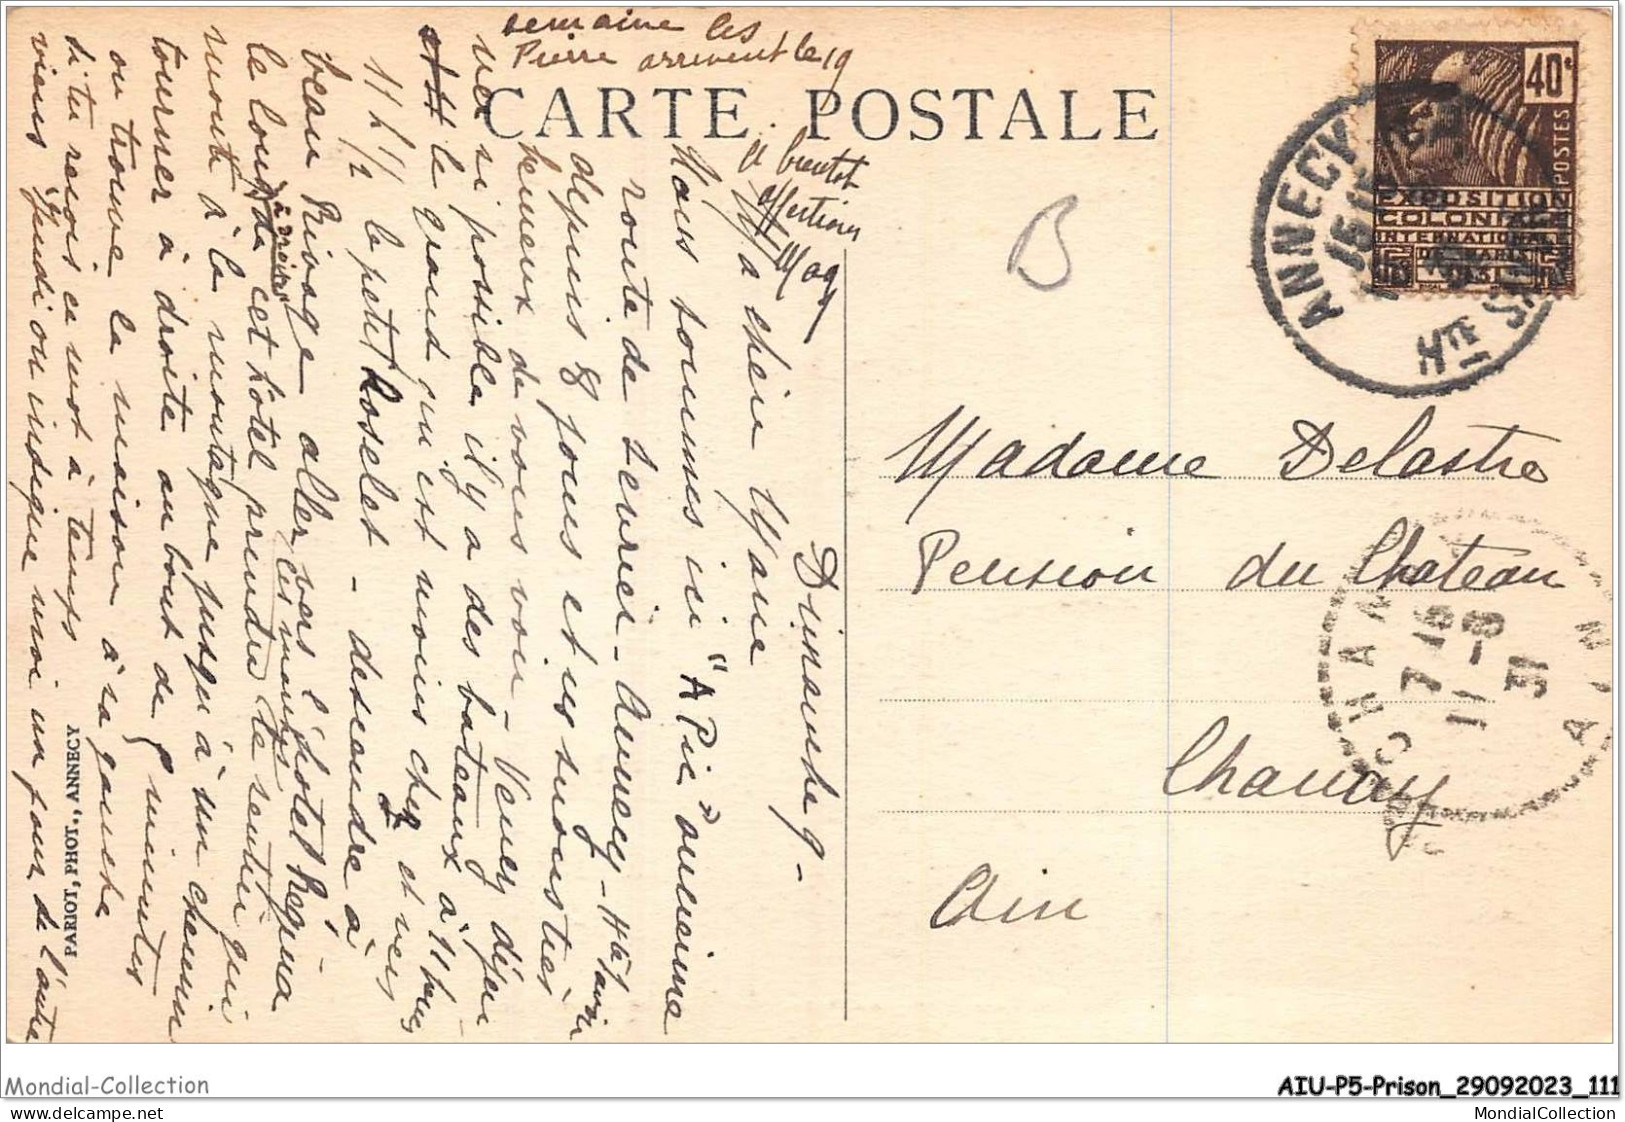 semaine les
Pierre arrivent le 19
CARTE POSTALE
à bientôt
affections
Mag
Dimanche 9 -
Ma chère Marie
Nous sommes ici "A Pic" ancienne
route de Sevrier - Annecy - Hte Savoie
depuis 8 jours et je suis
heureux de vous voir - Venez déjeu
ner si possible il y a des bateaux à 11 heures
le grand qui est moins cher et vers
11 h 1/2 le petit Roselet - descendre à
beau Rivage aller vers l'hotel Régina
le long de cet hôtel prendre le sentier qui
monte à la montagne jusqu'à un chemin
tourner à droite au bout de 5 minutes
on trouve la maison à sa gauche
Si tu reçois ce mot à temps
viens jeudi ou indique moi un jour de l'autre
PARIOT, PHOT., ANNECY
B
40c
POSTES
EXPOSITION
COLONIALE
INTERNATIONALE
DE PARIS
1931
ANNECY
Hte SAVOIE
Madame Delastre
Pension du Chateau
Chanay
Ain
CHANAY
7 15
11 - 8
31
AIN
Mondial-Collection
AIU-P5-Prison_29092023_111
MondialCollection